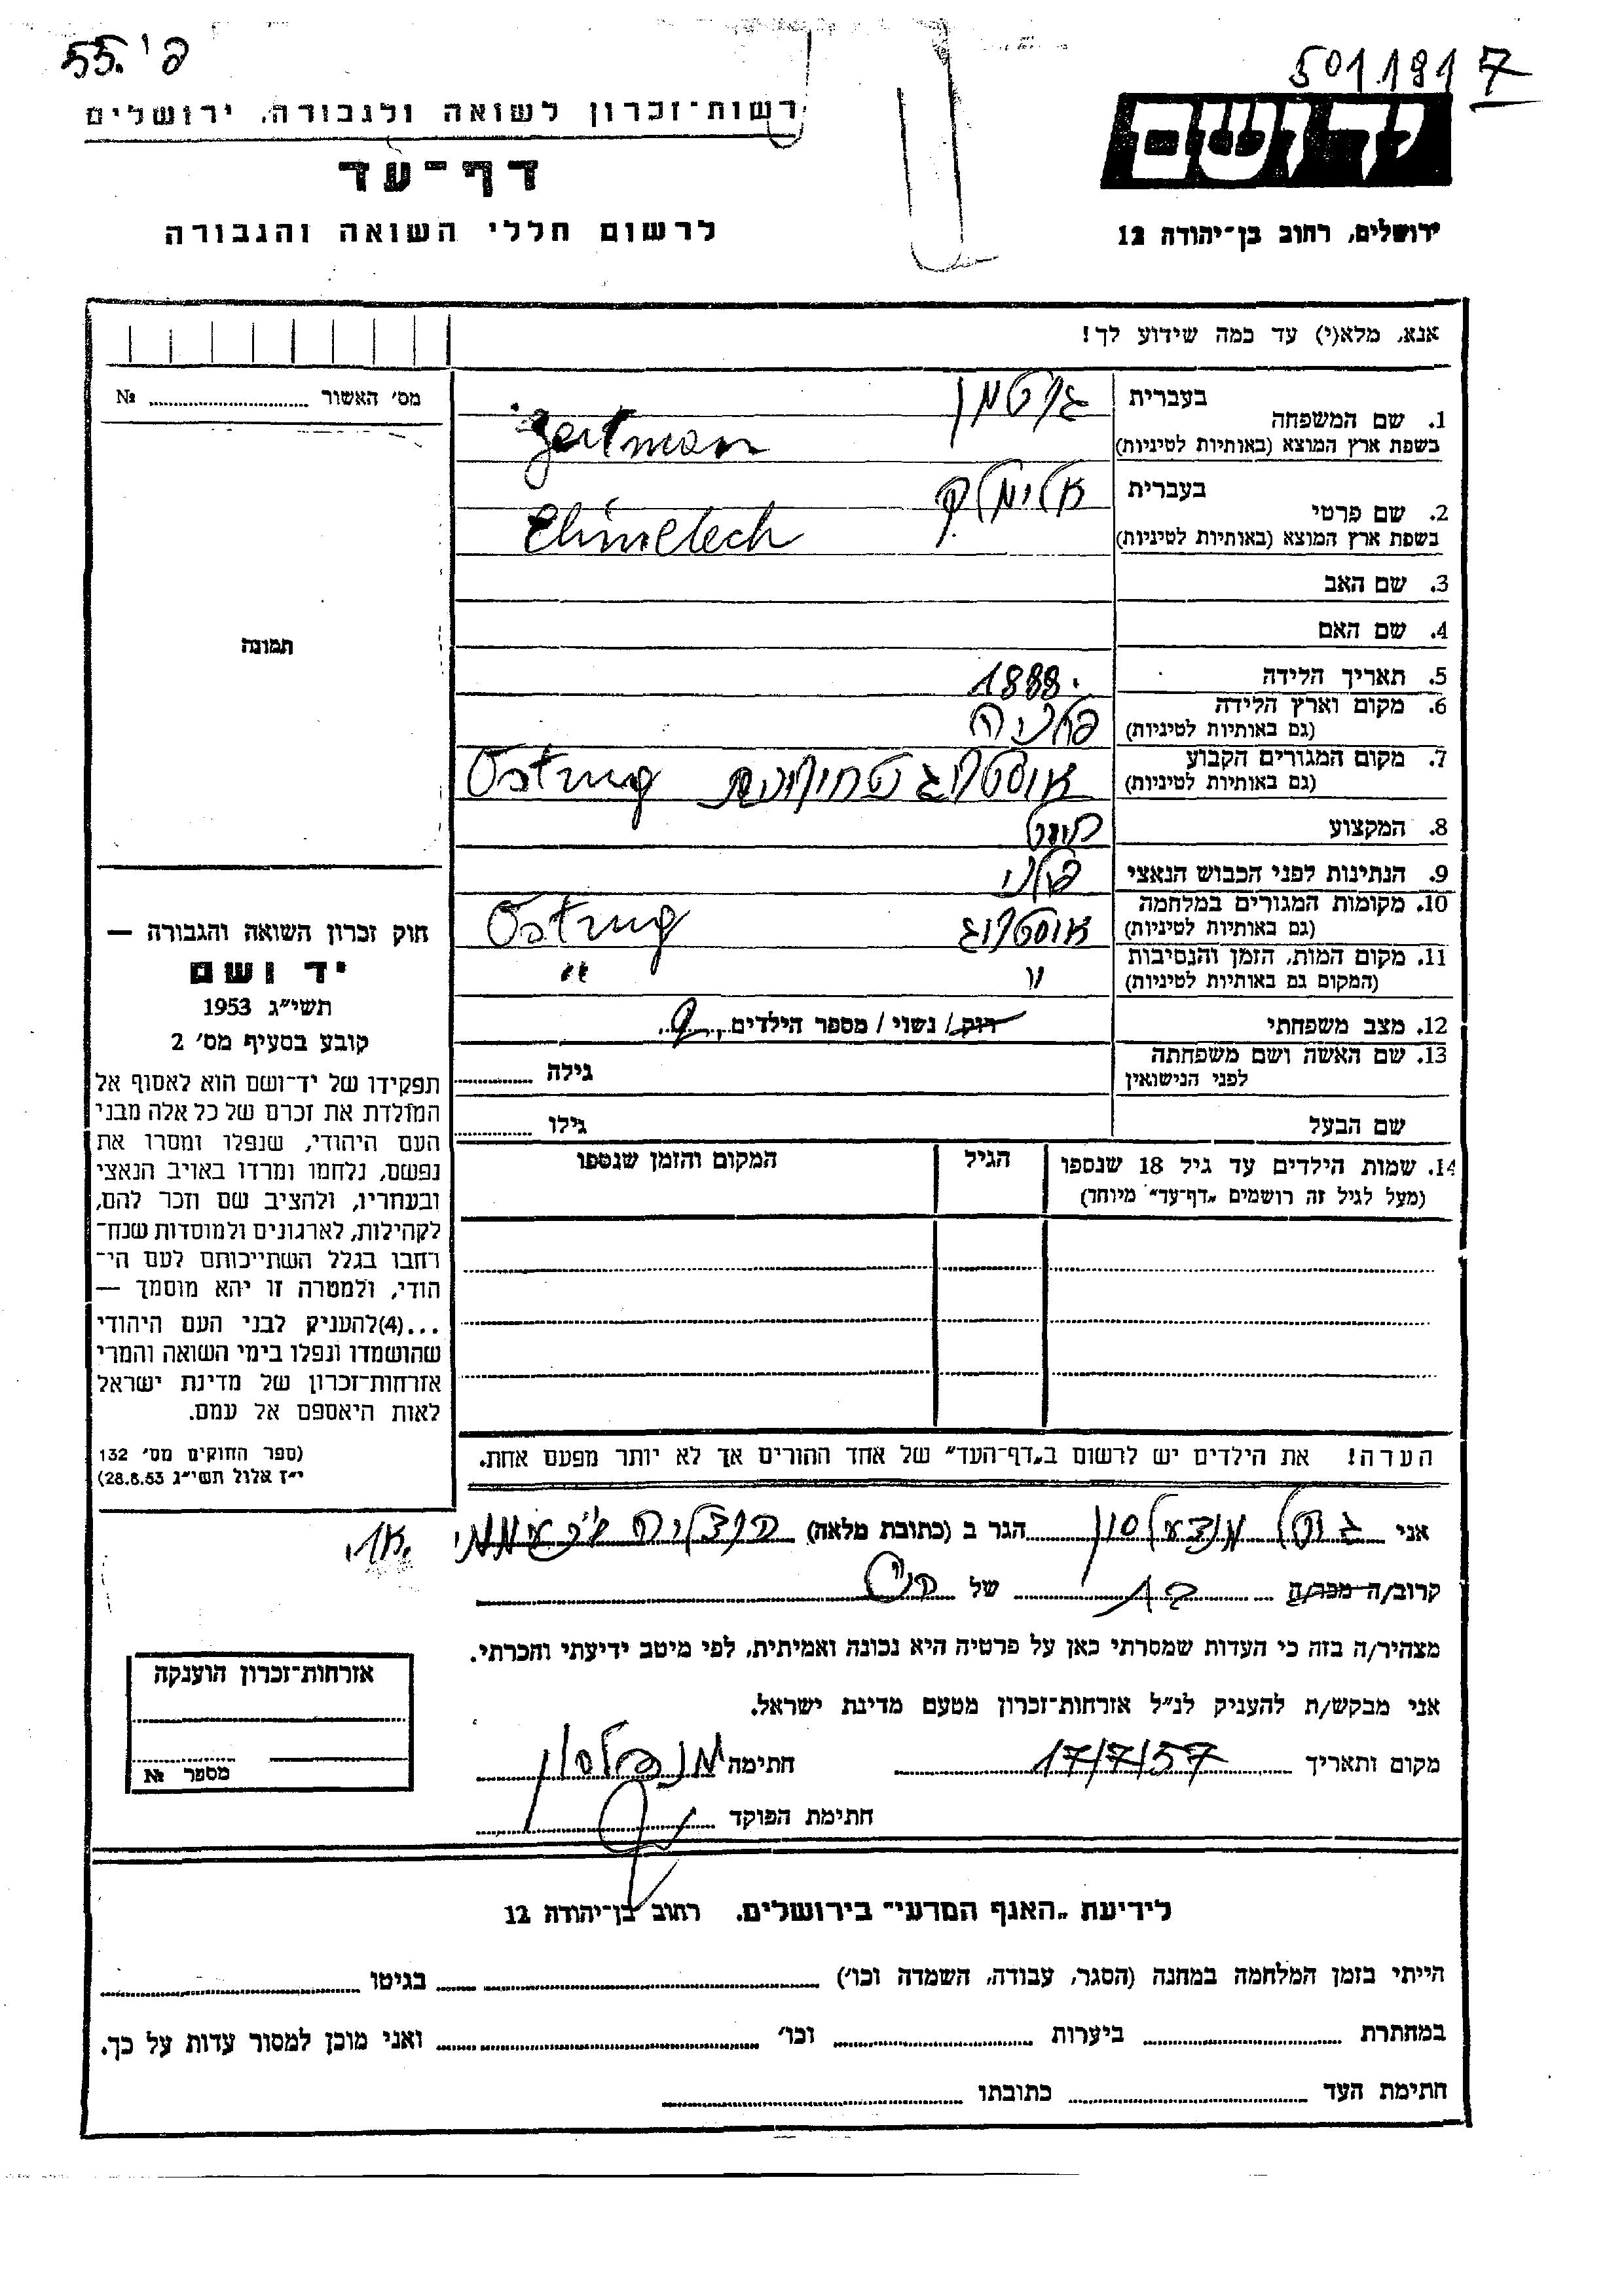 פ' 55.
501.191 7
רשות־זכרון לשואה ולגבורה, ירושלים
דף־עד
לרשום חללי השואה והגבורה
יד ושם
ירושלים, רחוב בן־יהודה 12
אנא, מלא(י) עד כמה שידוע לך!
מס' האשור № 
תמונה
1. שם המשפחה בעברית
בשפת ארץ המוצא (באותיות לטיניות)
2. שם פרטי בעברית אלימלך
בשפת ארץ המוצא (באותיות לטיניות) Elimelech
3. שם האב
4. שם האם
5. תאריך הלידה 1888.
6. מקום וארץ הלידה פולניה
(גם באותיות לטיניות)
7. מקום המגורים הקבוע אוסטרוג
(גם באותיות לטיניות)
8. המקצוע
9. הנתינות לפני הכבוש הנאצי פולני
10. מקומות המגורים במלחמה אוסטרוג
(גם באותיות לטיניות)
11. מקום המות, הזמן והנסיבות " "
(המקום גם באותיות לטיניות)
12. מצב משפחתי רוק / נשוי / מספר הילדים
13. שם האשה ושם משפחתה
לפני הנישואין גילה
שם הבעל גילו
14. שמות הילדים עד גיל 18 שנספו הגיל המקום והזמן שנספו
(מעל לגיל זה רושמים „דף־עד" מיוחד)
הערה! את הילדים יש לרשום ב„דף־העד" של אחד ההורים אך לא יותר מפעם אחת.
חוק זכרון השואה והגבורה —
יד ושם
תשי"ג 1953
קובע בסעיף מס' 2
תפקידו של יד־ושם הוא לאסוף אל
המולדת את זכרם של כל אלה מבני
העם היהודי, שנפלו ומסרו את
נפשם, נלחמו ומרדו באויב הנאצי
ובעוזריו, ולהציב שם וזכר להם,
לקהילות, לארגונים ולמוסדות שנח־
רחבו בגלל השתייכותם לעם הי־
הודי, ולמטרה זו יהא מוסמך —
...(4)להעניק לבני העם היהודי
שהושמדו ונפלו בימי השואה והמרי
אזרחות־זכרון של מדינת ישראל
לאות היאספם אל עמם.
(ספר החוקים מס' 132
י"ז אלול תשי"ג 28.8.53)
אני הגר ב (כתובת מלאה)
קרוב/ה מכר/ה של
מצהיר/ה בזה כי העדות שמסרתי כאן על פרטיה היא נכונה ואמיתית, לפי מיטב ידיעתי והכרתי.
אני מבקש/ת להעניק לנ"ל אזרחות־זכרון מטעם מדינת ישראל.
מקום ותאריך 17/7/57 חתימה
חתימת הפוקד
אזרחות־זכרון הוענקה
מספר №
לידיעת „האגף המדעי" בירושלים, רחוב בן־יהודה 12
הייתי בזמן המלחמה במחנה (הסגר, עבודה, השמדה וכו') בגיטו
במחתרת ביערות וכו' ואני מוכן למסור עדות על כך.
חתימת העד כתובתו